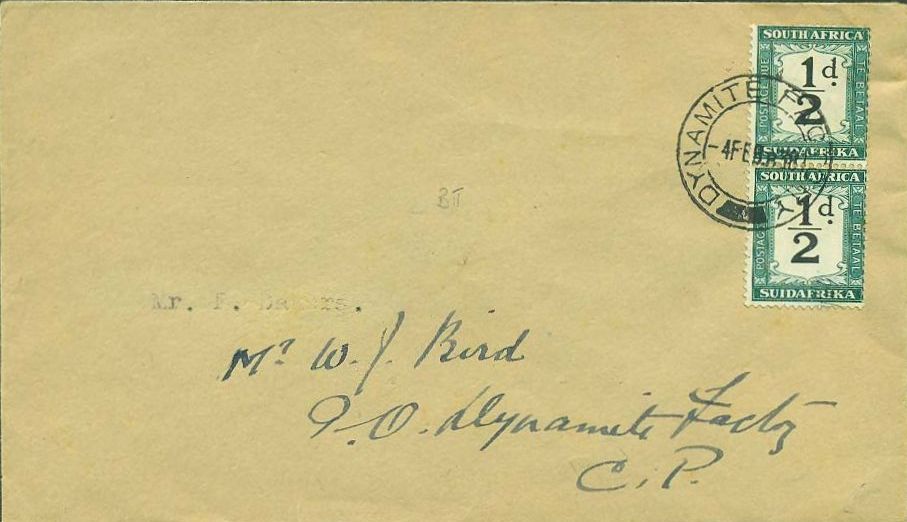 SOUTH AFRICA
POSTAGE DUE
1/2 d.
TE BETAAL
SUIDAFRIKA
SOUTH AFRICA
POSTAGE
1/2 d.
TE BETAAL
SUIDAFRIKA
DYNAMITE
BT
Mr.
Mr W. J. Bird
P.O. Dynamite Factory
C.P.